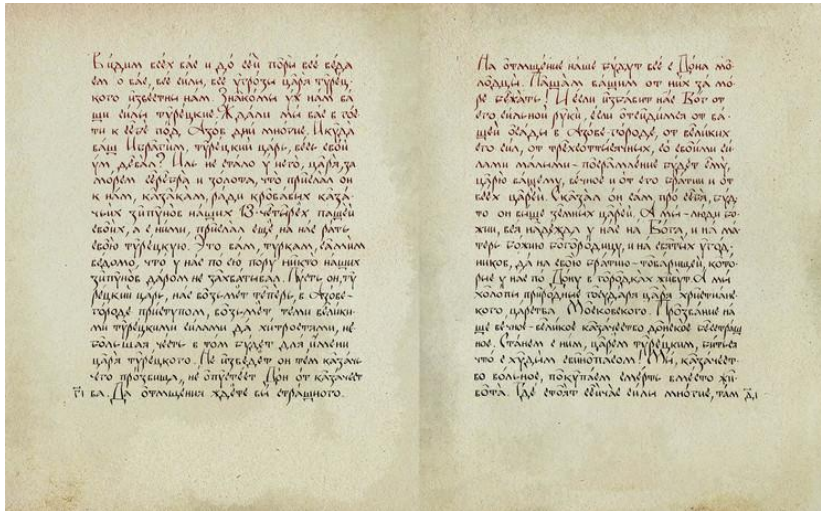 Видим всех вас и до сей поры все веда
ем о вас, все силы, все угрозы царя турец-
кого известны нам. Знакомы уж нам ва
ши силы турецкие. Ждали мы вас в гос
ти к себе под Азов дни многие. И куда
ваш Ибрагим, турецкий царь, весь свой
ум девал? Иль не стало у него, царя, за
морем серебра и золота, что прислал он
к нам, казакам, ради кровавых каза-
чьих зипунов наших 13-четырех пашей
своих, а с ними, прислал еще, на нас рать
свою турецкую. Это вам, туркам, самим
ведомо, что у нас по сю пору никто наших
зипунов даром не захватывал. Пусть он, ту
рецкий царь, нас возьмет теперь, в Азове-
городе приступом, возьмет, теми велики-
ми турецкими силами да хитростями, не-
большая честь в том будет для имени
царя турецкого. Не изведет он тем казачь-
его прозвища, не опустеет Дон от казачест
ва. Да отмщения ждете вы страшного.
На отмщение наше будут все с Дона мо-
лодцы. Пашам вашим от них за мо-
ре бежать! И если избавит нас Бог от
его сильной руки, если отсидимся от ва-
шей осады в Азове-городе, от великих
его сил, от трехсоттысячных, со своими си
лами малыми - посрамление будет ему,
царю вашему, вечное и от его братии и от
всех царей. Сказал он сам про себя, буд-
то он выше земных царей. А мы - люди бо-
жии, вся надежда у нас на Бога, и на ма-
терь божию богородицу, и на святых угод-
ников, да на свою братию - товарищей, кото-
рые у нас по Дону в городках живут. А мы
холопи природные государя царя христианс-
кого, царства Московского. Прозвание на
ше вечное - великое казачество донское бесстраш
ное. Станем с ним, царем турецким, биться
что с худым свинопасом! Мы, казачест-
во вольное, покупаем смерть вместо жи-
вота. Где стоят сейчас силы многие, там